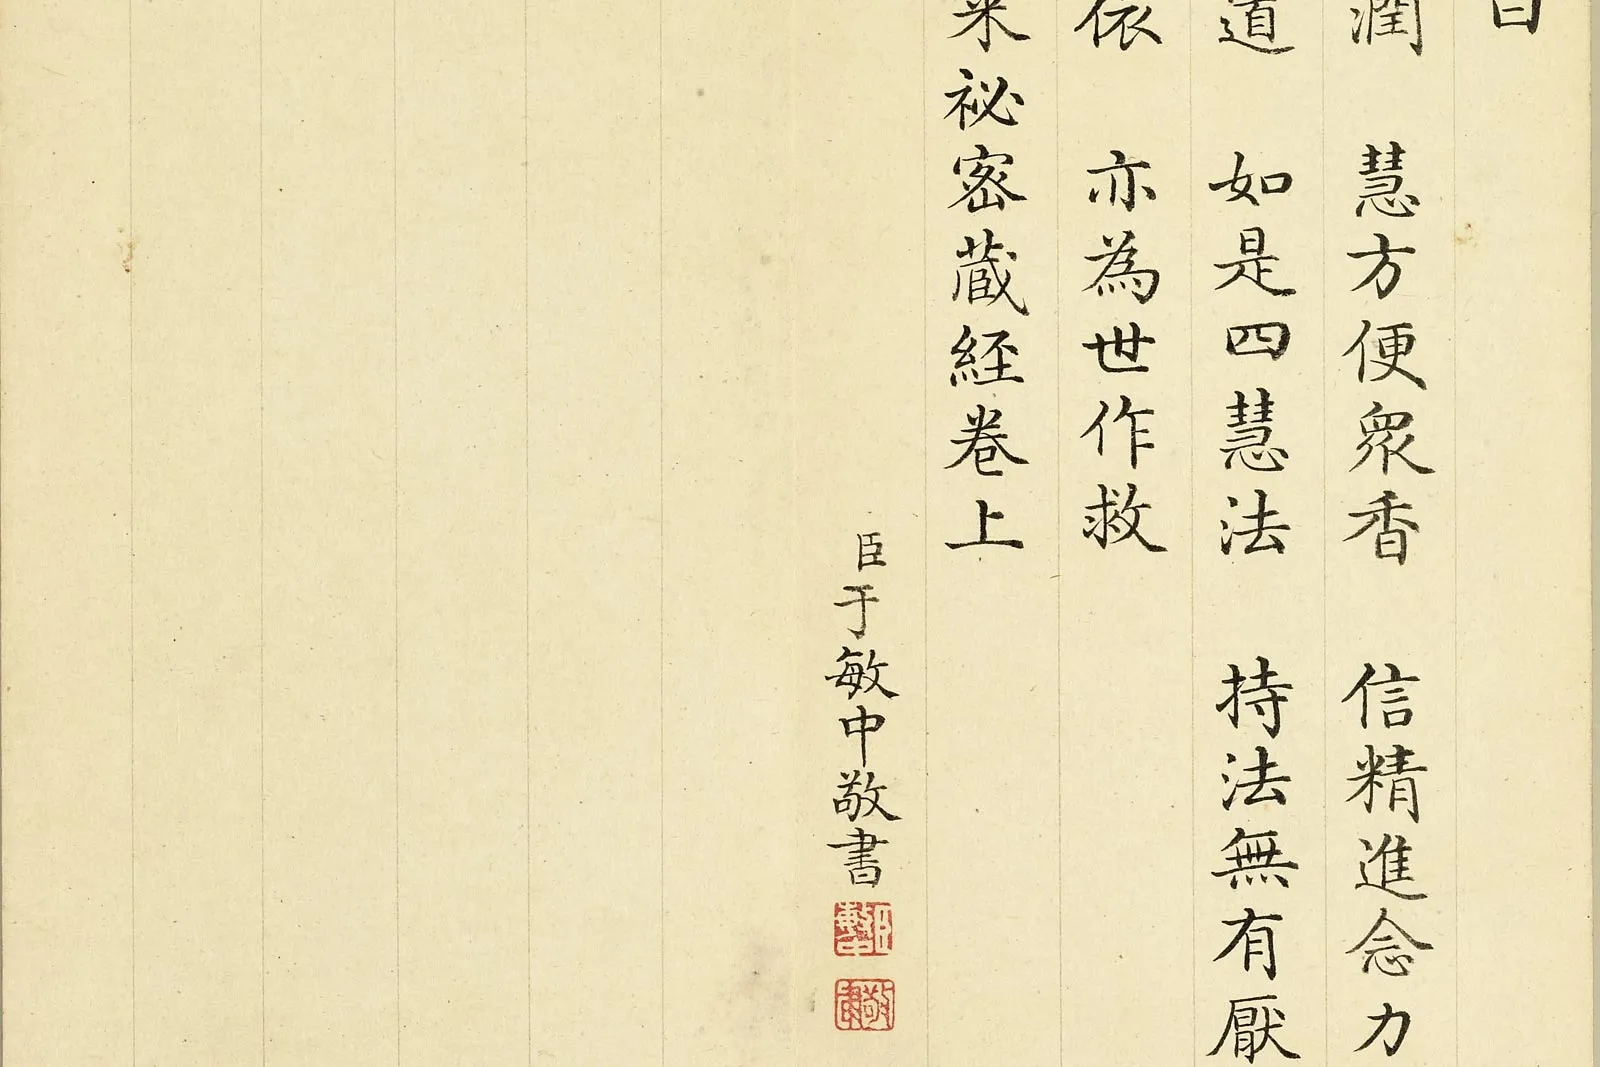 曰
潤　慧方便衆香　信精進念力
道　如是四慧法　持法無有厭
依　亦為世作救
来祕密蔵經卷上
臣于敏中敬書
臣敏中
敬書